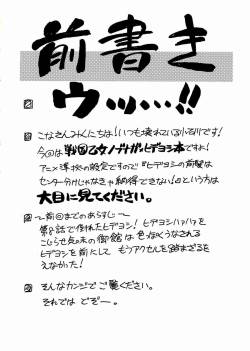 前書き
ウッ…!!
こなさんみんにちは!いつも壊れている小石川です!
今回は戦国乙女ノブナガ×ヒデヨシ本ですわ!
アニメ準拠の設定ですので『ヒデヨシの前髪は
センター分けじゃなきゃ納得できない!』という方は
大目に見てください。
～前回までのあらすじ～
第8話で倒れたヒデヨシ!ヒデヨシハァハァを
こじらせ気味の御館は
ヒデヨシを前にして もうアクセルを踏まざるを
えなかった!
そんなカンジでご覧ください。
それでは どぞー。